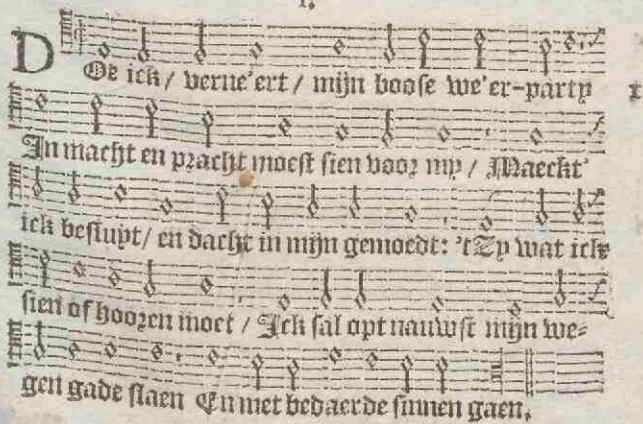 1.
DOe ick / verne'ert / mijn boose we'er-party
In macht en pracht moest sien voor my / Maeckt'
ick besluyt / en dacht in mijn gemoedt: 't Zy wat ick
sien of hooren moet / Ick sal opt nauwst mijn we-
gen gade slaen En met bedaerde sinnen gaen.